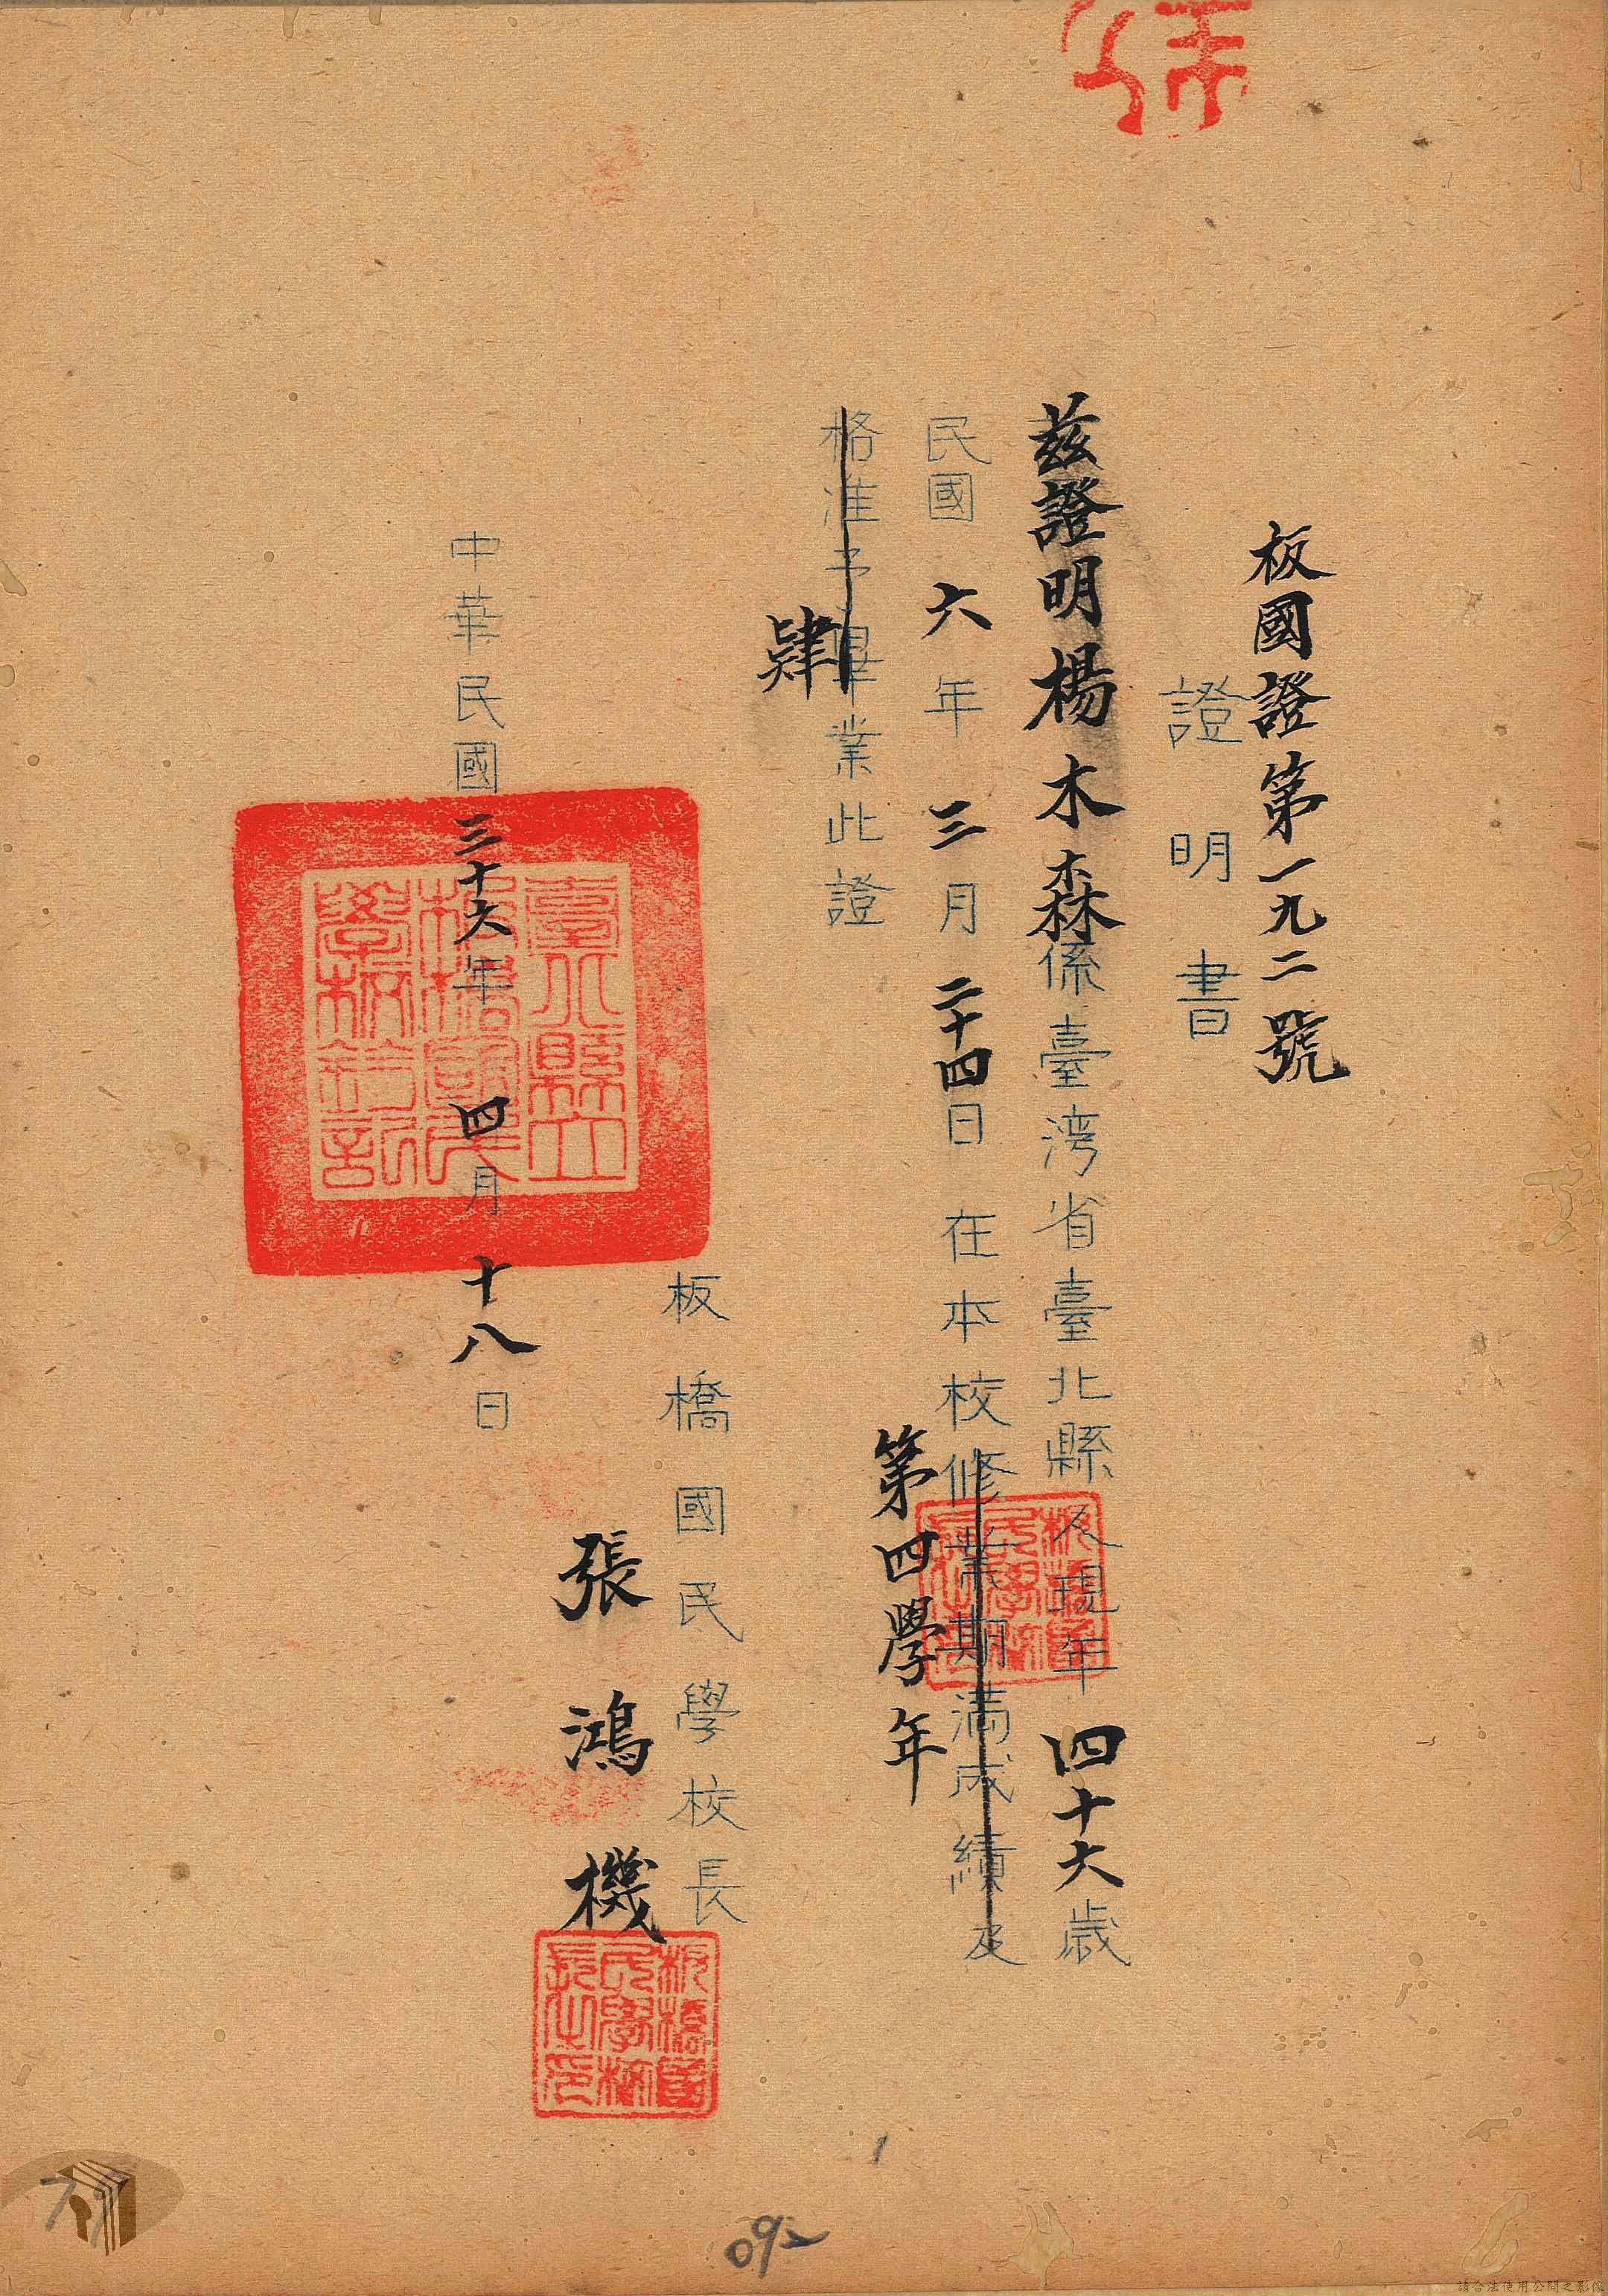 板國證第一九二號
證明書
茲證明楊木森係臺湾省臺北縣人現年四十六歲
民國六年三月二十四日在本校修業期満成績及
第四學年
格准予畢業此證
肄
板橋國民學校長
張鴻機
中華民國三十六年四月十八日
臺北縣立
板橋國民
學校鈐記
板橋國
民學校
長之印
板橋國
民學校
長之印
1
092
79
請合法使用公開之影像